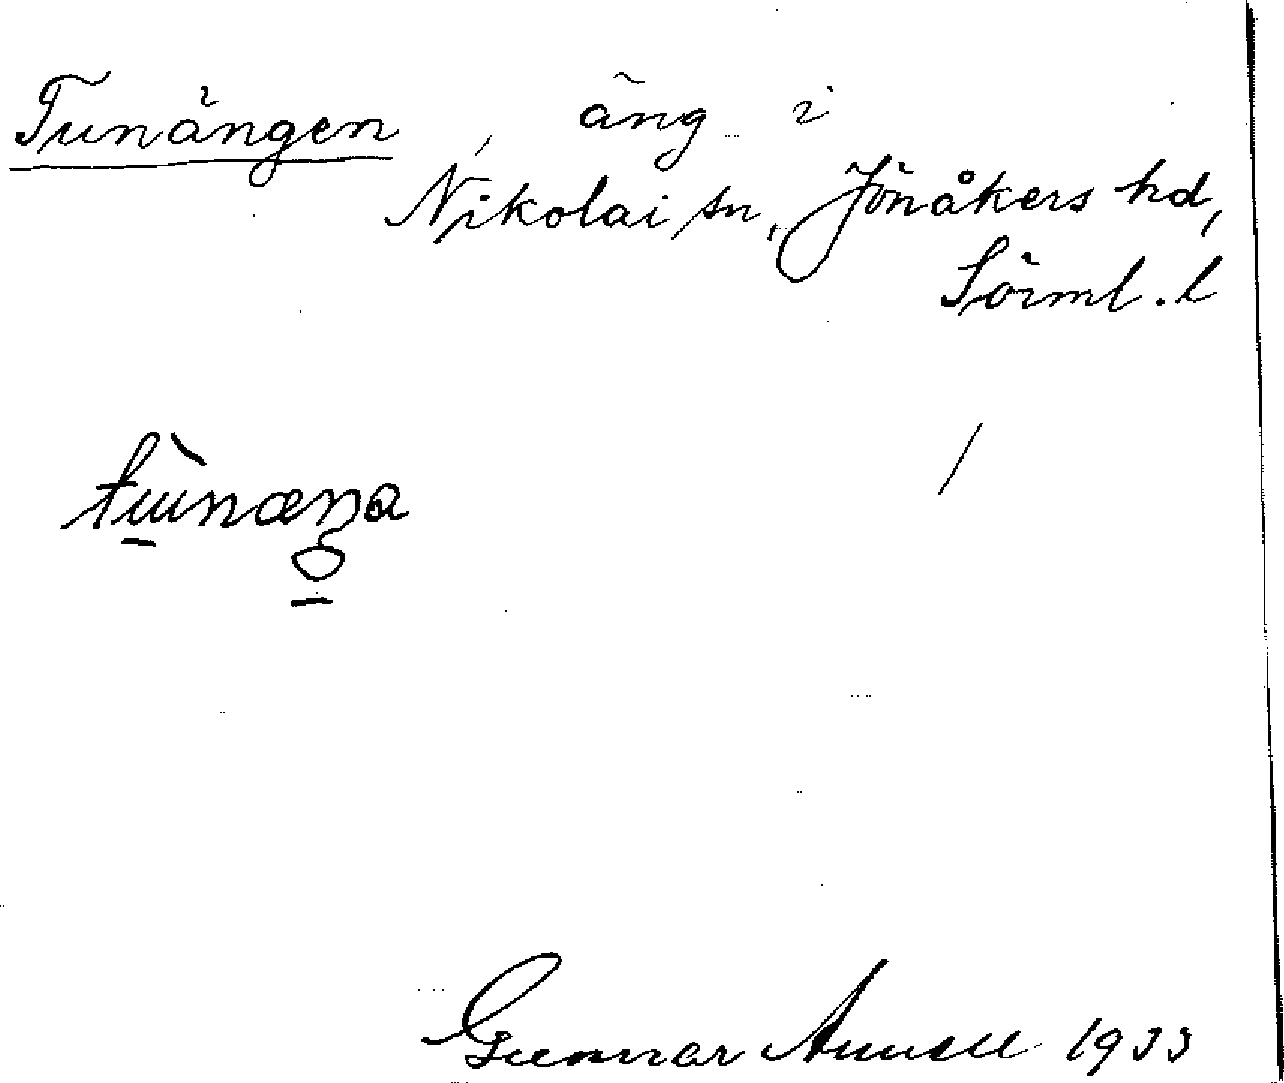 Tunängen, äng i
Nikolai sn, Jönåkers hd,
Sörml. l
Gunnar 1933